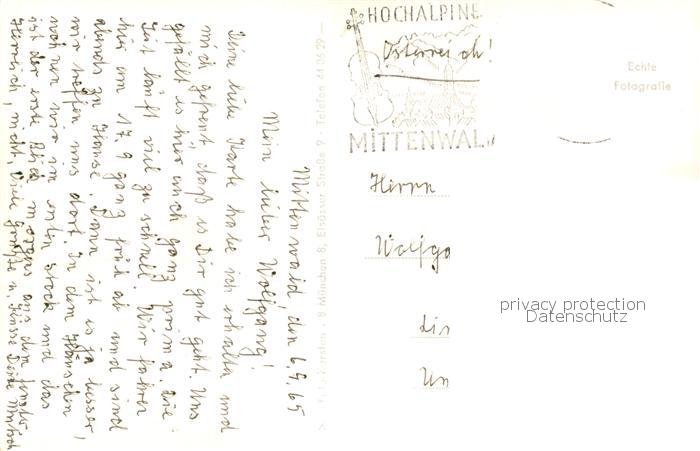 Mittenwald, den 6.9.65
Mein lieber Wolfgang!
Deine liebe Karte habe ich erhalten und
mich gefreut, daß es Dir gut geht. Uns
gefällt es hier auch ganz prima. Die
Zeit läuft viel zu schnell. Wir fahren
hier am 17.9 ganz früh ab und sind
abends zu Hause. Dann ist es ja besser,
wir treffen uns dort. In dem Häuschen
wohnen wir im ersten Stock und das
ist der erste Blick morgens aus dem Fenster
Herrlich, nicht. Viele Grüße u. Küsse Deine
München 8, Elsässer Straße 9 · Telefon 44 06 29
HOCHALPINE
Österreich!
MITTENWALD
Echte
Fotografie
Herrn
Wolfga
Lin
Un
privacy protection
Datenschutz